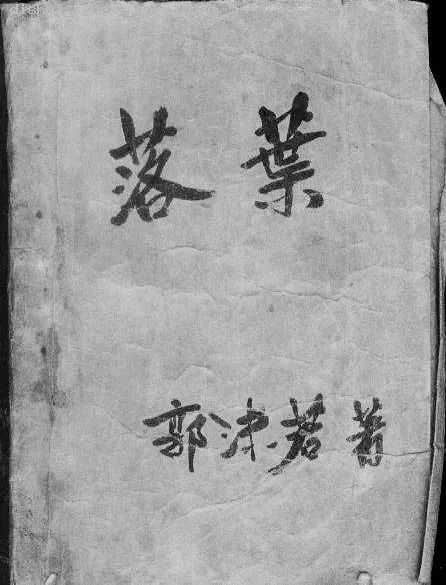 落葉
郭沫若著